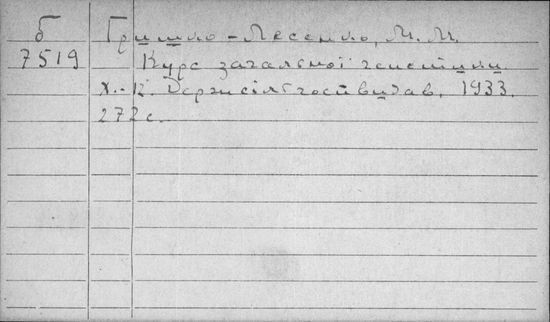 б Гришко-Лесенко, М. М.
7519 Курс загальної генетики
Х.-К. Держсільгоспвидав, 1933.
272 с.